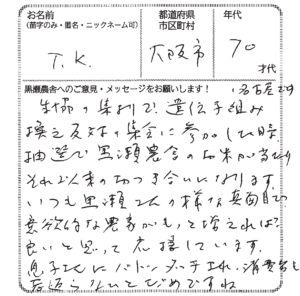 お名前
(苗字のみ・匿名・ニックネーム可)
都道府県
市区町村
年代
T.K.
大阪市
70
才代
黒瀬農舎へのご意見・メッセージをお願いします!
(名古屋です)
生協の集りで、遺伝子組み
換え反対の集会に参加した時
抽選で黒瀬農舎のお米が当たり
それ以来のおつき合いになります。
いつも黒瀬さんの様な真面目で
意欲的な農家がもっと増えれば
良いと思って応援しています。
息子さんにバトンタッチされ、消費者も
若返らないとだめですね